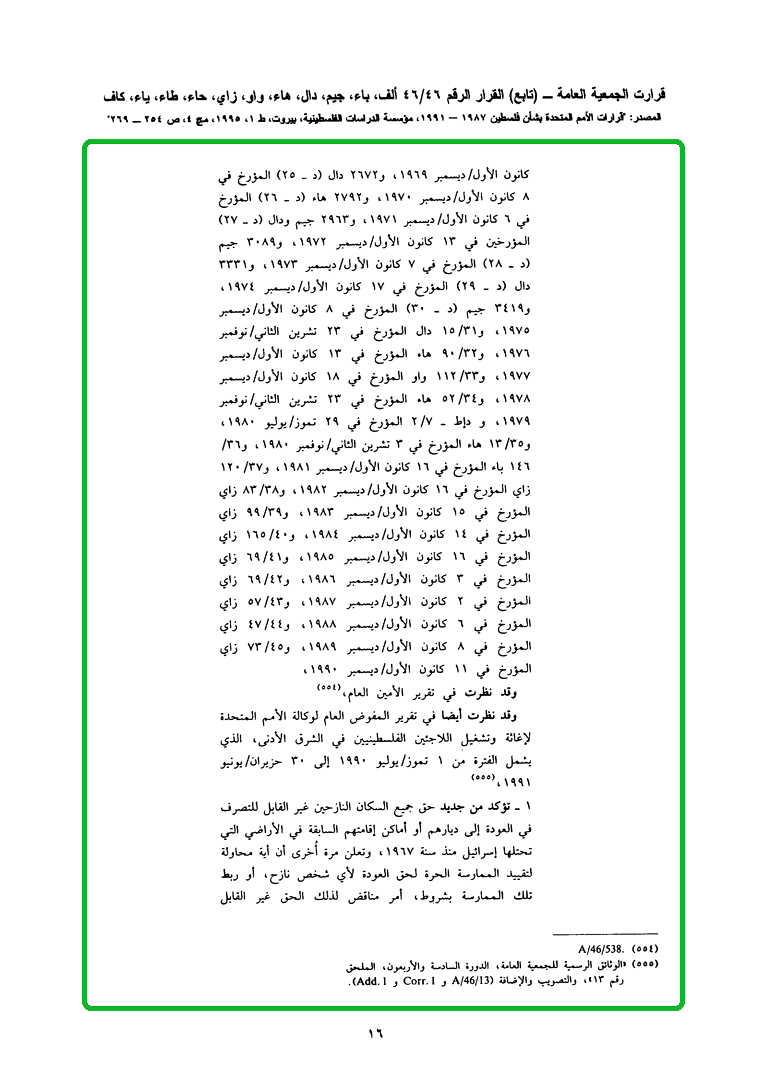 قرارت الجمعية العامة ــ (تابع) القرار الرقم ٤٦/٤٦ ألف، باء، جيم، دال، هاء، واو، زاي، حاء، طاء، ياء، كاف
المصدر: "قرارات الأمم المتحدة بشأن فلسطين ١٩٨٧ ــ ١٩٩١، مؤسسة الدراسات الفلسطينية، بيروت، ط ١، ١٩٩٥، مج ٤، ص ٢٥٤ ــ ٢٦٩"
كانون الأول/ديسمبر ١٩٦٩، و٢٦٧٢ دال (د ـ ٢٥) المؤرخ في
٨ كانون الأول/ديسمبر ١٩٧٠، و٢٧٩٢ هاء (د ـ ٢٦) المؤرخ
في ٦ كانون الأول/ديسمبر ١٩٧١، و٢٩٦٣ جيم ودال (د ـ ٢٧)
المؤرخين في ١٣ كانون الأول/ديسمبر ١٩٧٢، و٣٠٨٩ جيم
(د ـ ٢٨) المؤرخ في ٧ كانون الأول/ديسمبر ١٩٧٣، و٣٣٣١
دال (د ـ ٢٩) المؤرخ في ١٧ كانون الأول/ديسمبر ١٩٧٤،
و٣٤١٩ جيم (د ـ ٣٠) المؤرخ في ٨ كانون الأول/ديسمبر
١٩٧٥، و١٥/٣١ دال المؤرخ في ٢٣ تشرين الثاني/نوفمبر
١٩٧٦، و٩٠/٣٢ هاء المؤرخ في ١٣ كانون الأول/ديسمبر
١٩٧٧، و١١٢/٣٣ واو المؤرخ في ١٨ كانون الأول/ديسمبر
١٩٧٨، و٥٢/٣٤ هاء المؤرخ في ٢٣ تشرين الثاني/نوفمبر
١٩٧٩، و دإط ـ ٢/٧ المؤرخ في ٢٩ تموز/يوليو ١٩٨٠،
و١٣/٣٥ هاء المؤرخ في ٣ تشرين الثاني/نوفمبر ١٩٨٠، و٣٦/
١٤٦ باء المؤرخ في ١٦ كانون الأول/ديسمبر ١٩٨١، و١٢٠/٣٧
زاي المؤرخ في ١٦ كانون الأول/ديسمبر ١٩٨٢، و٨٣/٣٨ زاي
المؤرخ في ١٥ كانون الأول/ديسمبر ١٩٨٣، و٩٩/٣٩ زاي
المؤرخ في ١٤ كانون الأول/ديسمبر ١٩٨٤، و١٦٥/٤٠ زاي
المؤرخ في ١٦ كانون الأول/ديسمبر ١٩٨٥، و٦٩/٤١ زاي
المؤرخ في ٣ كانون الأول/ديسمبر ١٩٨٦، و٦٩/٤٢ زاي
المؤرخ في ٢ كانون الأول/ديسمبر ١٩٨٧، و٥٧/٤٣ زاي
المؤرخ في ٦ كانون الأول/ديسمبر ١٩٨٨، و٤٧/٤٤ زاي
المؤرخ في ٨ كانون الأول/ديسمبر ١٩٨٩، و٧٣/٤٥ زاي
المؤرخ في ١١ كانون الأول/ديسمبر ١٩٩٠،
وقد نظرت في تقرير الأمين العام،(٥٥٤)
وقد نظرت أيضا في تقرير المفوض العام لوكالة الأمم المتحدة
لإغاثة وتشغيل اللاجئين الفلسطينيين في الشرق الأدنى، الذي
يشمل الفترة من ١ تموز/يوليو ١٩٩٠ إلى ٣٠ حزيران/يونيو
١٩٩١،(٥٥٥)
١ ـ تؤكد من جديد حق جميع السكان النازحين غير القابل للتصرف
في العودة إلى ديارهم أو أماكن إقامتهم السابقة في الأراضي التي
تحتلها إسرائيل منذ سنة ١٩٦٧، وتعلن مرة أُخرى أن أية محاولة
لتقييد الممارسة الحرة لحق العودة لأي شخص نازح، أو ربط
تلك الممارسة بشروط، أمر مناقض لذلك الحق غير القابل
(٥٥٤) A/46/538.
(٥٥٥) "الوثائق الرسمية للجمعية العامة، الدورة السادسة والأربعون، الملحق
رقم ١٣"، والتصويب والإضافة (A/46/13 و Corr.1 و Add.1).
١٦